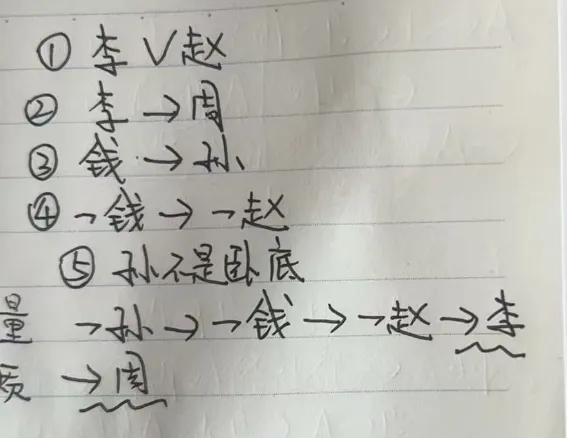 ① 李 ∨ 赵
② 李 → 周
③ 钱 → 孙
④ ¬钱 → ¬赵
⑤ 孙不是卧底
量 ¬孙 → ¬钱 → ¬赵 → 李
质 → 周